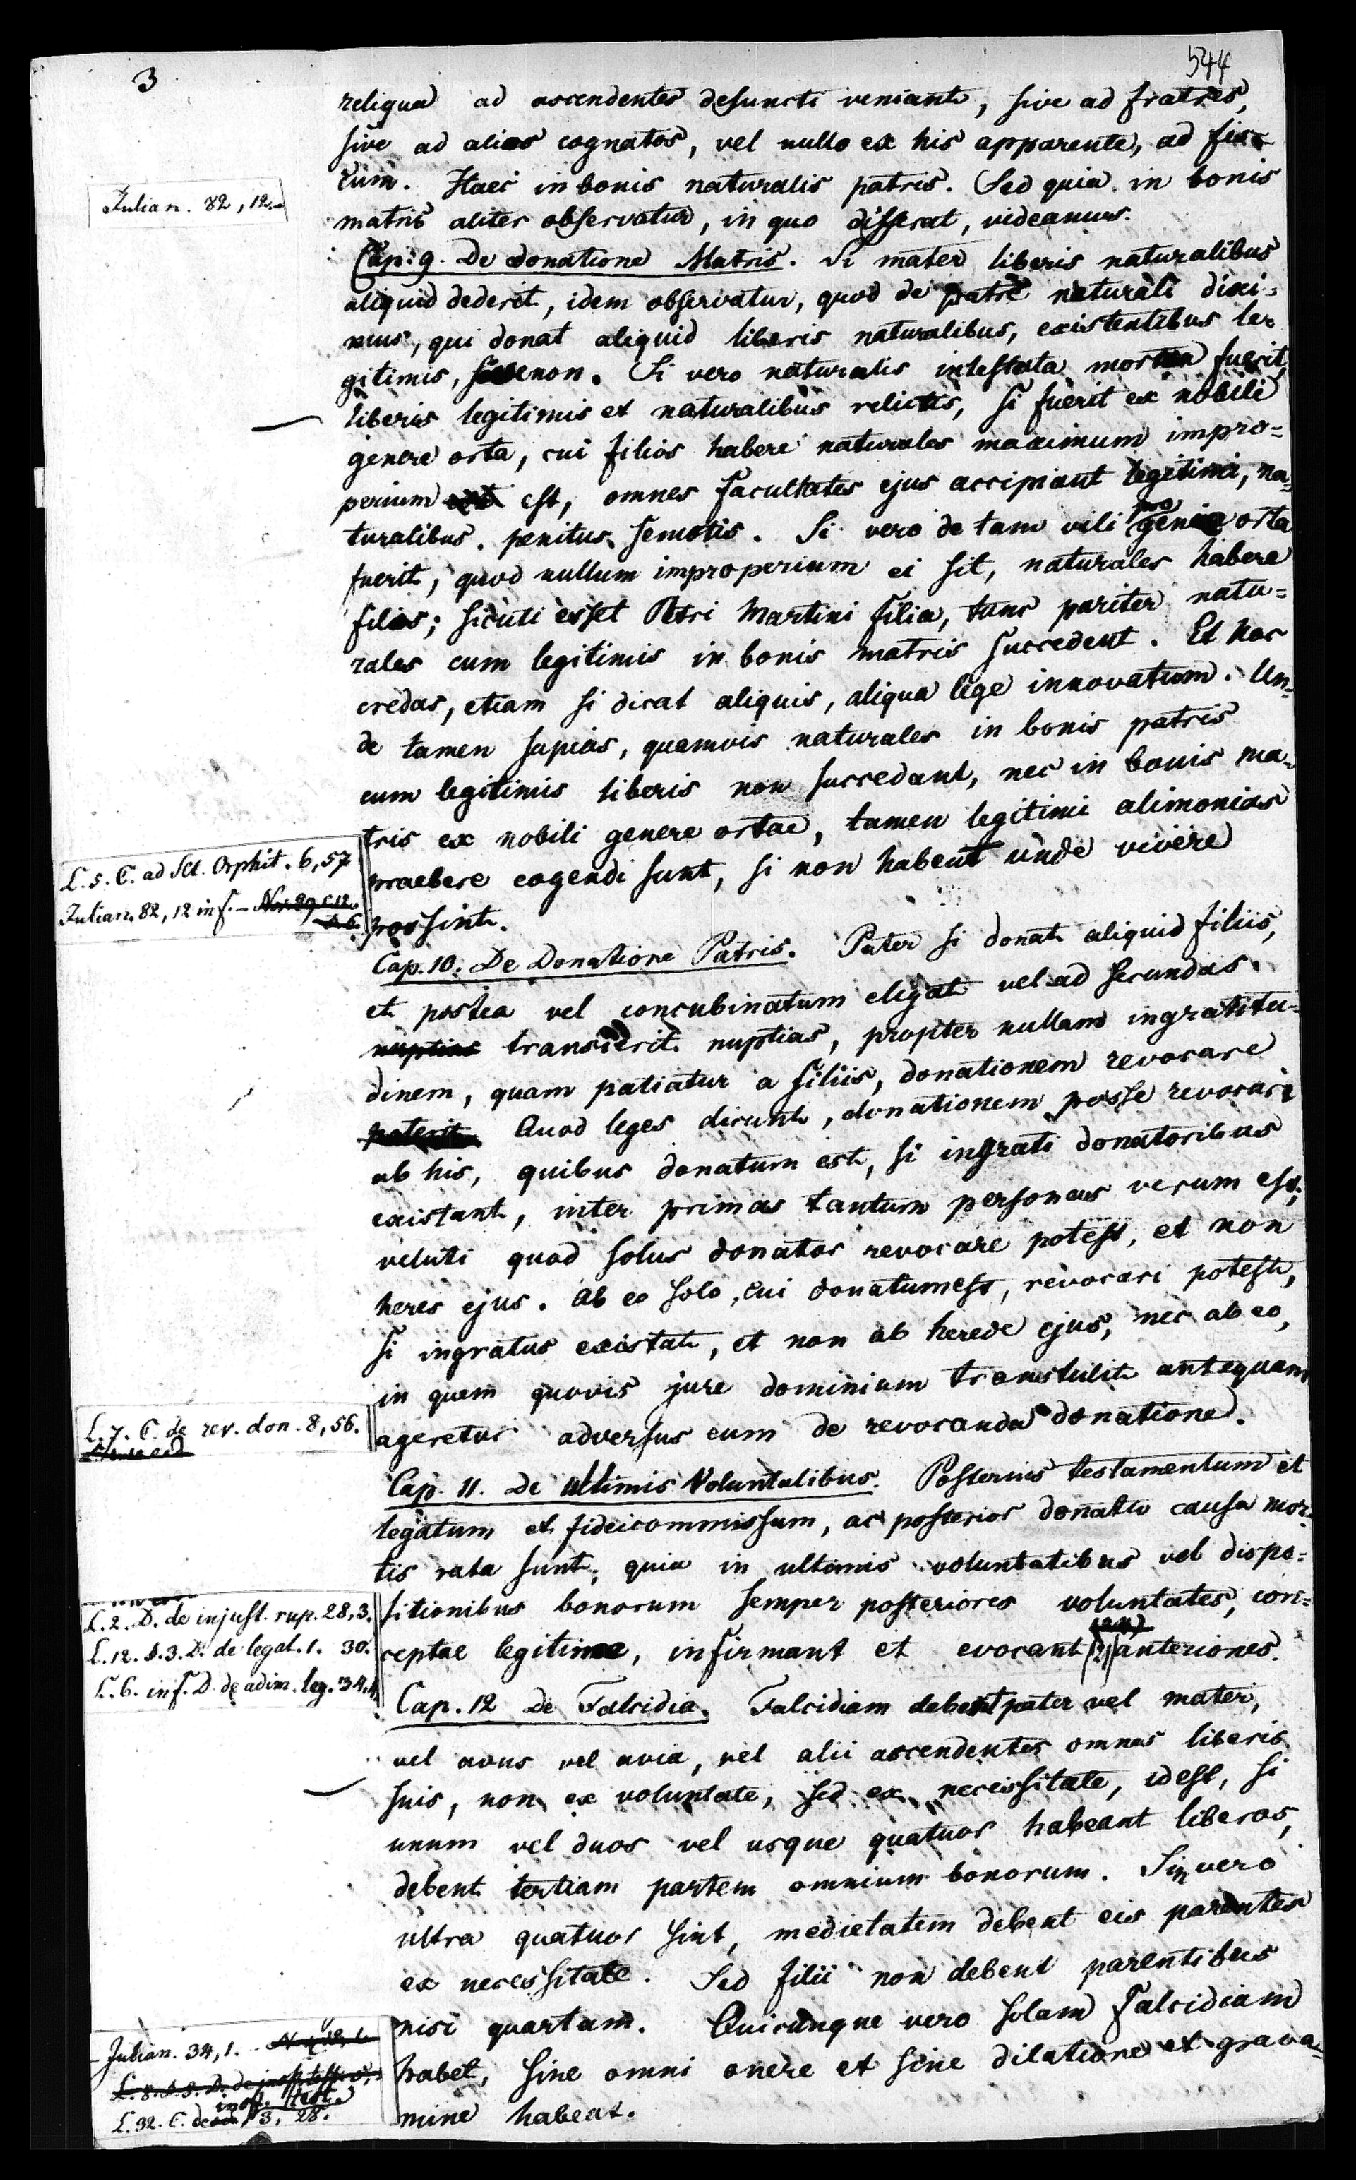 3
544
reliqua ad ascendentes defuncti veniant, sive ad fratres,
sive ad alios cognatos, vel nullo ex his apparente, ad fis-
cum. Haec in bonis naturalis patris. Sed quia in bonis
Julian. 82, 12.
matris aliter observatur, in quo differat, videamus.
Cap. 9. De donatione Matris. Si mater liberis naturalibus
aliquid dederit, idem observatur, quod de patre naturali dixi=
mus, qui donat aliquid liberis naturalibus, existentibus le=
gitimis, sive non. Si vero naturalis intestata mortua fuerit,
liberis legitimis et naturalibus relictis, si fuerit ex nobili
genere orta, cui filios habere naturales maximum impro=
perium est, omnes facultates ejus accipiant legitimi, na=
turalibus penitus semotis. Si vero de tam vili genere orta
fuerit, quod nullum improperium ei sit, naturales habere
filios; sicuti esset Petri Martini filia, tunc pariter natu=
rales cum legitimis in bonis matris succedent. Et hoc
credas, etiam si dicat aliquis, aliqua lege innovatum. Un=
de tamen sapias, quamvis naturales in bonis patris
cum legitimis liberis non succedant, nec in bonis ma=
tris ex nobili genere ortae, tamen legitimi alimonias
L. 5. C. ad Sct. Orphit. 6, 57
praebere cogendi sunt, si non habent unde vivere
Julian. 82, 12 in f. – Nov. 89 c 12.
possint.
Cap. 10. De Donatione Patris. Pater si donat aliquid filiis,
et postea vel concubinatum eligat vel ad secundas
nuptias transierit nuptias, propter nullam ingratitu=
dinem, quam patiatur a filiis, donationem revocare
poterit. Quod leges dicunt, donationem posse revocari
ab his, quibus donatum est, si ingrati donatoribus
existant, inter primas tantum personas verum est;
veluti quod solus donator revocare potest, et non
heres ejus. Ab eo solo, cui donatum est, revocari potest,
si ingratus existat, et non ab herede ejus, nec ab eo,
in quem quovis jure dominium transtulit antequam
L. 7. C. de rev. don. 8, 56.
ageretur adversus eum de revocanda donatione.
Cap. 11. De ultimis Voluntatibus. Posterius testamentum et
legatum et fideicommissum, ac posterior donatio causa mor=
tis rata sunt, quia in ultimis voluntatibus vel dispo=
L. 2. D. de injust. rup. 28, 3.
sitionibus bonorum semper posteriores voluntates, con=
L. 12. §. 3. D. de legat. 1. 30.
ceptae legitime, infirmant et evocant anteriores.
L. 6. in f. D. de adim. leg. 34, 4.
Cap. 12 De Falcidia. Falcidiam debent pater vel mater,
vel avus vel avia, vel alii ascendentes omnes liberis
suis, non ex voluntate, sed ex necessitate, id est, si
unum vel duos vel usque quatuor habeant liberos,
debent tertiam partem omnium bonorum. Sin vero
ultra quatuor sint, medietatem debent eis parentes
ex necessitate. Sed filii non debent parentibus
nisi quartam. Quicunque vero solam Falcidiam
Julian. 34, 1.
habet, sine omni onere et sine dilatione et grava=
L. 32. C. de inoff. test. 3, 28.
mine habeat.